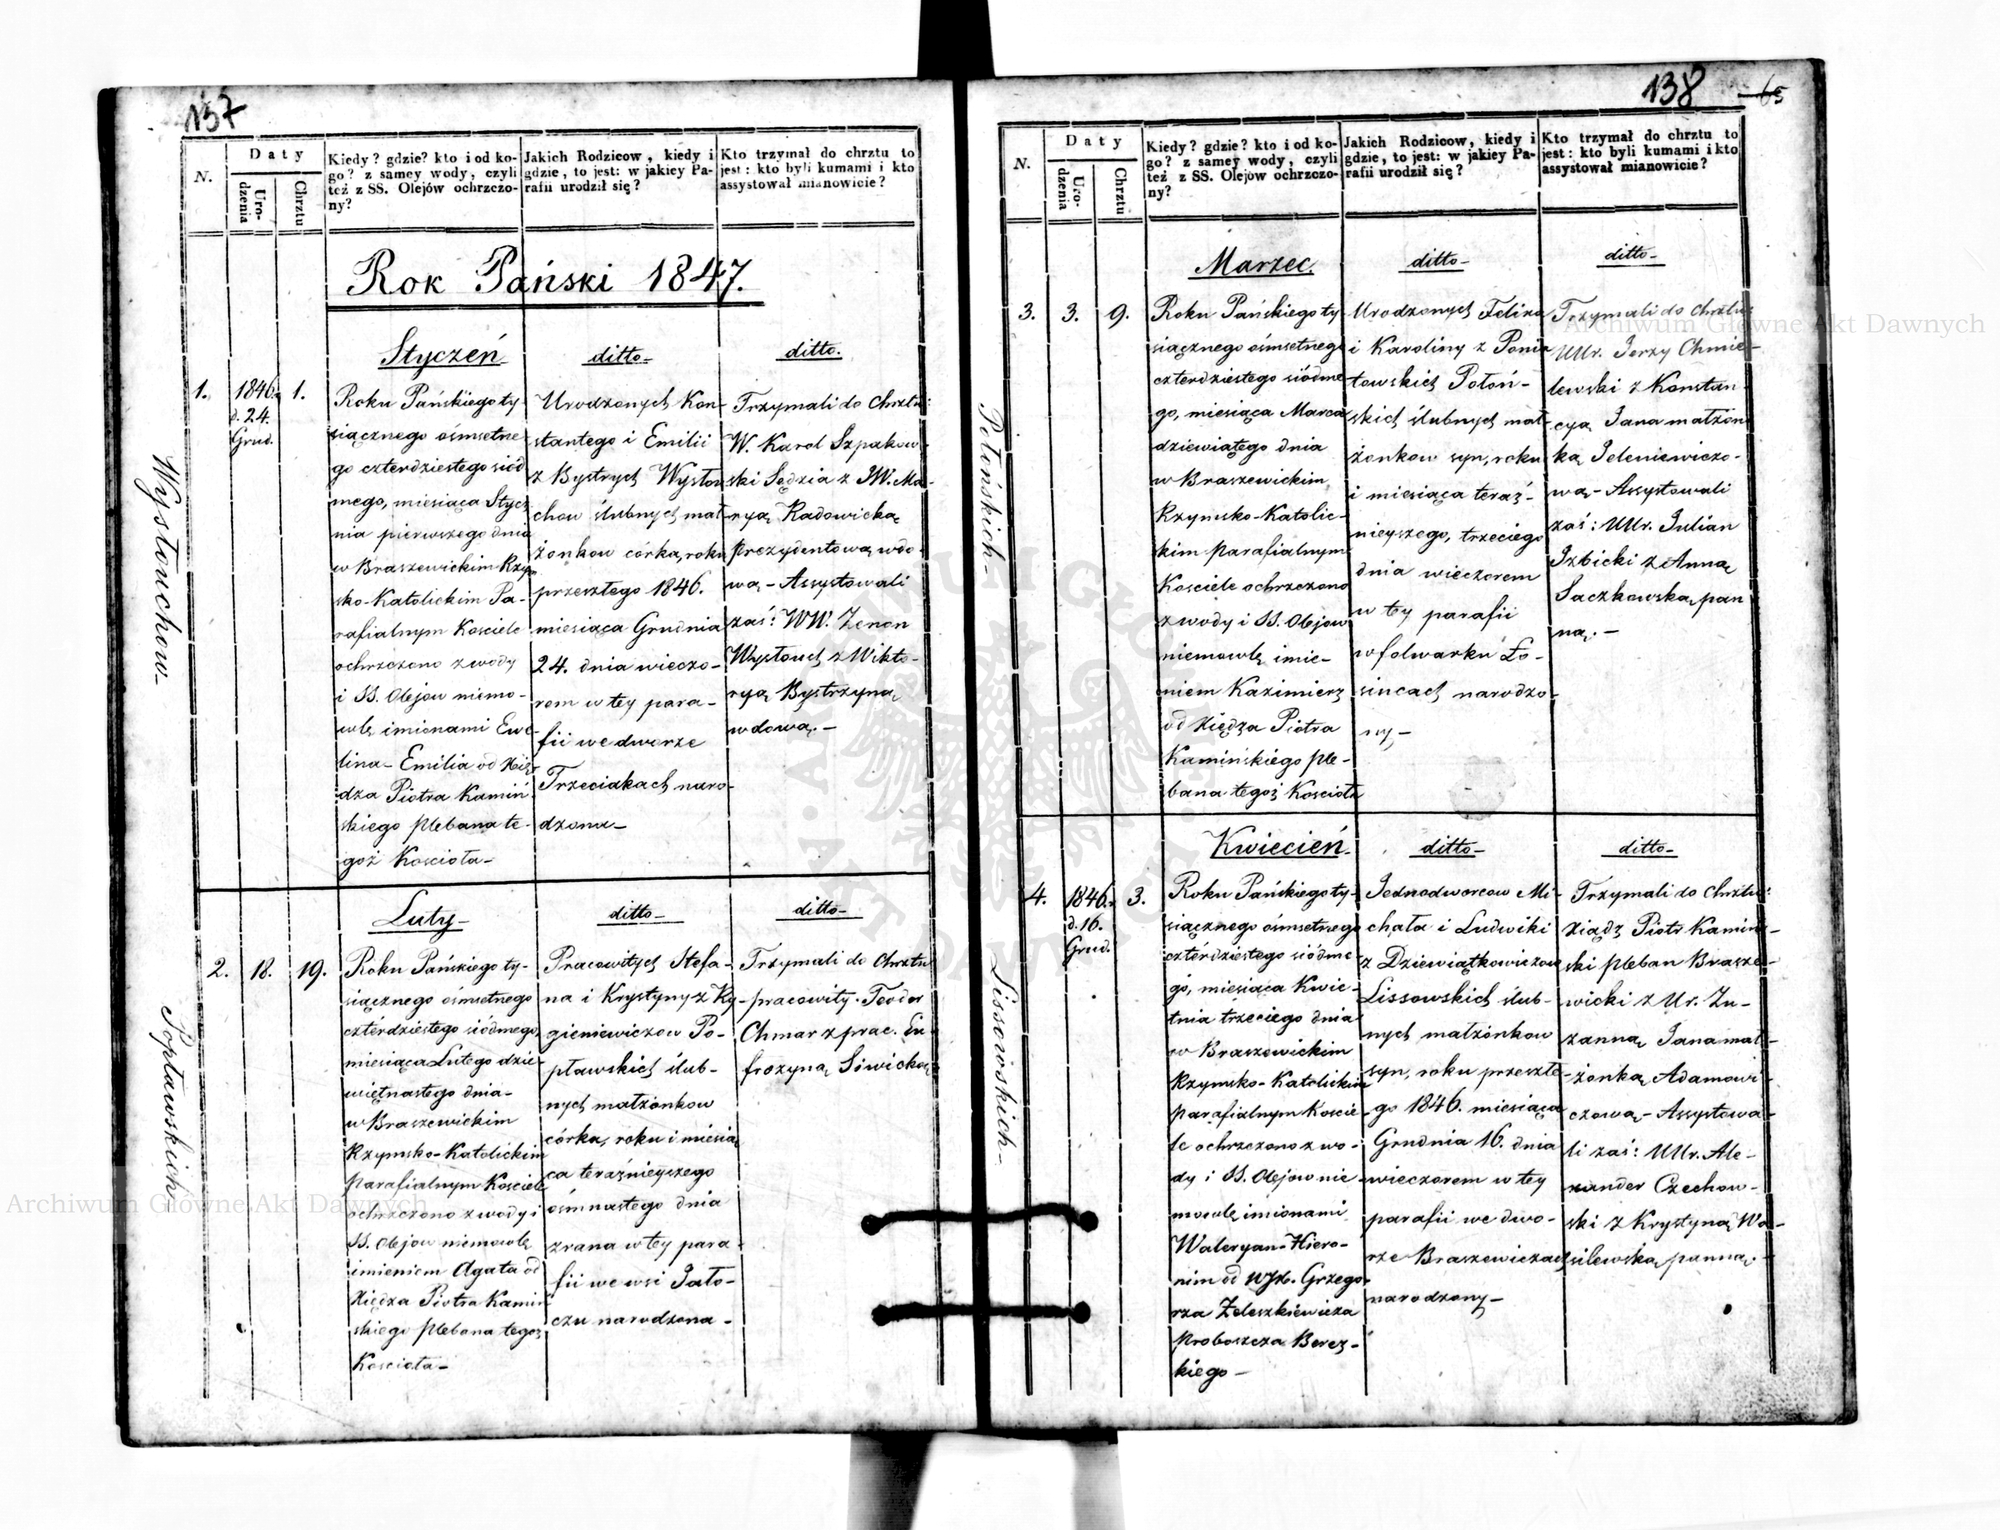 137
N.
Daty
Urodzenia
Chrztu
Kiedy? gdzie? kto i od ko-
go? z samey wody, czyli
też z SS. Olejów ochrzczo-
ny?
Jakich Rodzicow, kiedy i
gdzie, to jest: w jakiey Pa-
rafii urodził się?
Kto trzymał do chrztu to
jest: kto byli kumami i kto
assystował mianowicie?
Rok Pański 1847.
Styczeń
ditto
ditto.
Wysłouchow
1.
1846.
d. 24.
Grud.
1.
Roku Pańskiego ty-
siącznego ośmsetne
go czterdziestego siód
mego, miesiąca Stycz
nia pierwszego dnia
w Braszewickim Rzym
sko-Katolickim Pa-
rafialnym Kosciele
ochrzczono z wody
i SS. Olejow niemo-
wlę imionami Ewe-
lina-Emilia od Xię
dza Piotra Kamiń
skiego plebana te-
goż Kościoła-
Urodzonych Kon-
stantego i Emilii
z Bystrych Wysłou
chow ślubnych mał
żonkow córka, roku
przeszłego 1846.
miesiąca Grudnia
24. dnia wieczo-
rem w tey para-
fii we dworze
Trzeciakach naro-
dzona-
Trzymali do Chrztu:
W. Karol Szpakow-
ski Sędzia z JW. Ma-
ryą Radowicką
prezydentową wdo-
wą-Assystowali
zaś: WW. Zenon
Wysłouch z Wikto-
ryą Bystrzyną
wdową.-
Luty-
ditto-
ditto-
Popławskich
2.
18.
19.
Roku Pańskiego ty-
siącznego ośmsetnego
czterdziestego siódmego,
miesiąca Lutego dzie-
więtnastego dnia-
w Braszewickim
Rzymsko-Katolickim
parafialnym Kosciele
ochrzczono z wody i
SS. Olejow niemowlę
imieniem Agata od
Xiędza Piotra Kamiń
skiego plebana tegoż
Kosciola-
Pracowitych Stefa-
na i Krystyny z Ky-
gieniewiczow Po-
pławskich ślub-
nych małżonkow
córka, roku i miesią
ca teraźnieyszego
ośmnastego dnia
zrana w tey para-
fii we wsi Jało-
czu narodzona-
Trzymali do Chrztu
pracowity Teodor
Chmar z prac. Eu-
frozyną Siwicką
138
65
N.
Daty
Urodzenia
Chrztu
Kiedy? gdzie? kto i od ko-
go? z samey wody, czyli
też z SS. Olejów ochrzczo-
ny?
Jakich Rodzicow, kiedy i
gdzie, to jest: w jakiey Pa-
rafii urodził się?
Kto trzymał do chrztu to
jest: kto byli kumami i kto
assystował mianowicie?
Marzec.
ditto-
ditto-
Połońskich-
3.
3.
9.
Roku Pańskiego ty
siącznego ośmsetnego
czterdziestego siódme
go, miesiąca Marca
dziewiątego dnia
w Braszewickim
Rzymsko-Katolic-
kim parafialnym
Kosciele ochrzczono
z wody i SS. Olejow
niemowlę imie-
niem Kazimierz
od Xiędza Piotra
Kamińskiego ple-
bana tegoż Kosciola
Urodzonych Felixa
i Karoliny z Ponia
towskich Połoń-
skich ślubnych mał
żonkow syn, roku
i miesiąca teraź-
nieyszego, trzeciego
dnia wieczorem
w tey parafii
w folwarku Ło-
sincach narodzo-
ny-
Trzymali do Chrztu:
UUr. Jerzy Chmie-
lewski z Konstan-
cyą Jana małżon
ką Jeleniewiczo-
wą-Assystowali
zaś: UUr. Julian
Izbicki z Anną
Saczkowską, pan
ną.-
Kwiecień
ditto-
ditto-
Lissowskich-
4.
1846.
d. 16.
Grud.
3.
Roku Pańskiego ty-
siącznego ośmsetnego
czterdziestego siódme
go, miesiąca Kwie-
tnia trzeciego dnia
w Braszewickim
Rzymsko-Katolickim
parafialnym Koscie-
le ochrzczono z wo-
dy i SS. Olejow nie-
mowlę imionami
Waleryan-Hiero-
nim od WJX. Grzego-
rza Zeleszkiewicza
proboszcza Berez-
kiego-
Jednodworcow Mi-
chała i Ludwiki
z Dziewiątkowiczow
Lissowskich ślub-
nych małżonkow
syn, roku przeszłe-
go 1846. miesiąca
Grudnia 16. dnia
wieczorem w tey
parafii we dwo-
rze Braszewiczach
narodzony-
Trzymali do Chrztu:
Xiądz Piotr Kamiń-
ski pleban Brasze-
wicki z Ur. Zu-
zanną Jana mał-
żonką Adamowi-
czową-Assystowa-
li zaś: UUr. Ale-
xander Czechow-
ski z Krystyną Wa-
silewską panną.-
Archiwum Główne Akt Dawnych
Archiwum Główne Akt Dawnych